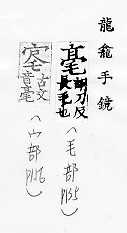 龍龕手鏡
毫 胡刀反
長毛也
(毛部 P135)
古文
音毫
(宀部 P156)